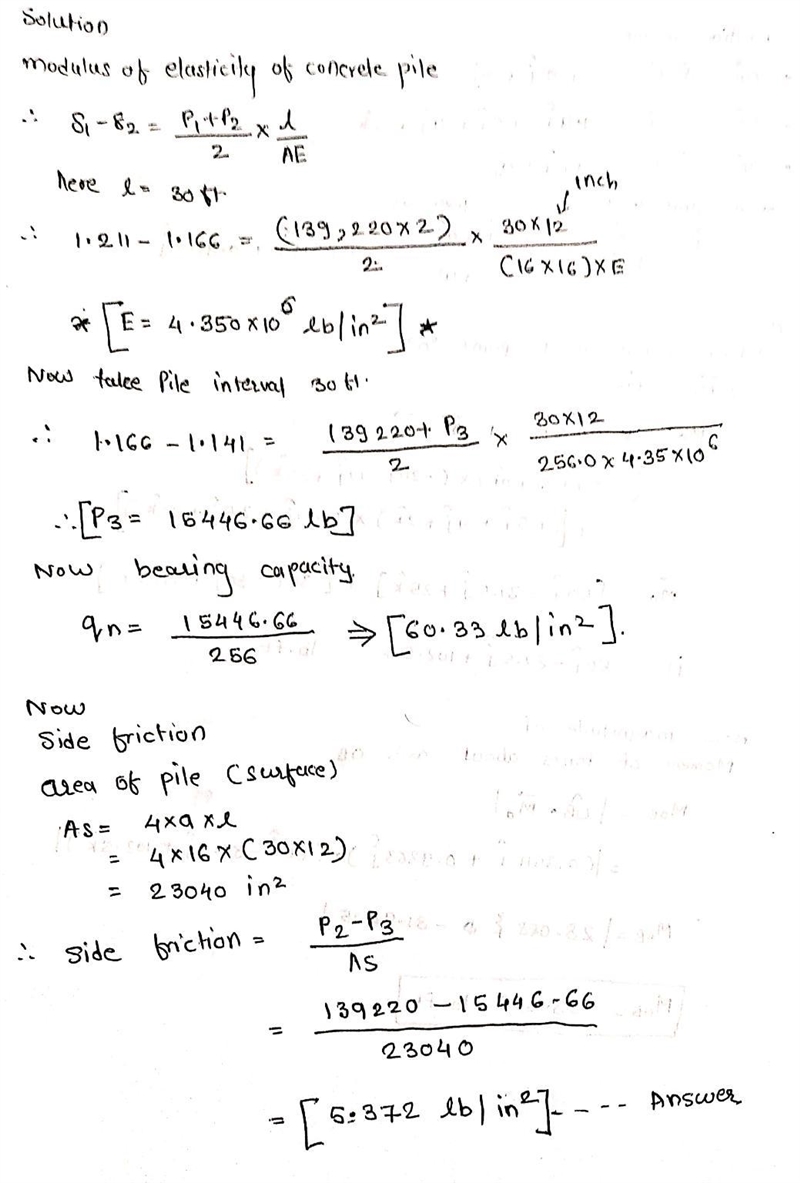 Solution
modulus of elasticity of concrete pile
∴ δ1 - δ2 = (P1+P2)/2 × l/AE
here l = 30 ft.
inch
∴ 1.211 - 1.166 = (139,220×2)/2 × 30×12/((16×16)×E)
* [E = 4.350×10^6 lb/in²] *
Now take Pile interval 30 ft.
∴ 1.166 - 1.141 = (139220 + P3)/2 × 30×12/(256.0 × 4.35×10^6)
∴ [P3 = 15446.66 lb]
Now bearing capacity.
qn = 15446.66/256 ⇒ [60.33 lb/in²].
Now
Side friction
area of pile (surface)
As = 4×a×l
= 4×16×(30×12)
= 23040 in²
∴ side friction = (P2-P3)/AS
= (139220 - 15446.66)/23040
= [5.372 lb/in²] ---- Answer